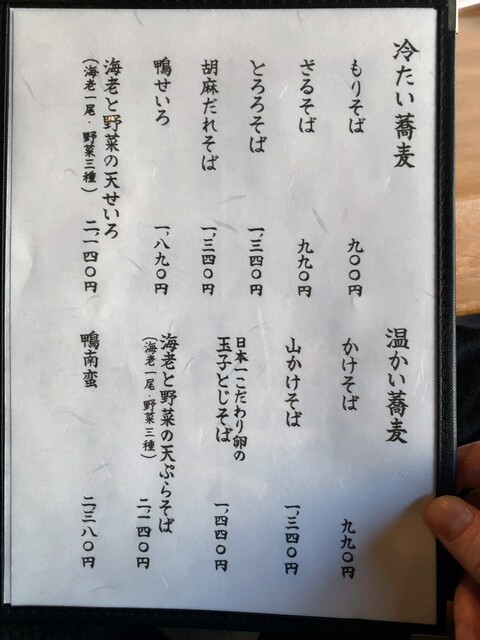 冷たい蕎麦
もりそば
九〇〇円
ざるそば
九九〇円
とろろそば
一、三四〇円
胡麻だれそば
一、三四〇円
鴨せいろ
一、八九〇円
海老と野菜の天せいろ
（海老一尾・野菜三種）
二、一四〇円
温かい蕎麦
かけそば
九九〇円
山かけそば
一、三四〇円
日本一こだわり卵の
玉子とじそば
一、四四〇円
海老と野菜の天ぷらそば
（海老一尾・野菜三種）
二、一四〇円
鴨南蛮
二、三八〇円